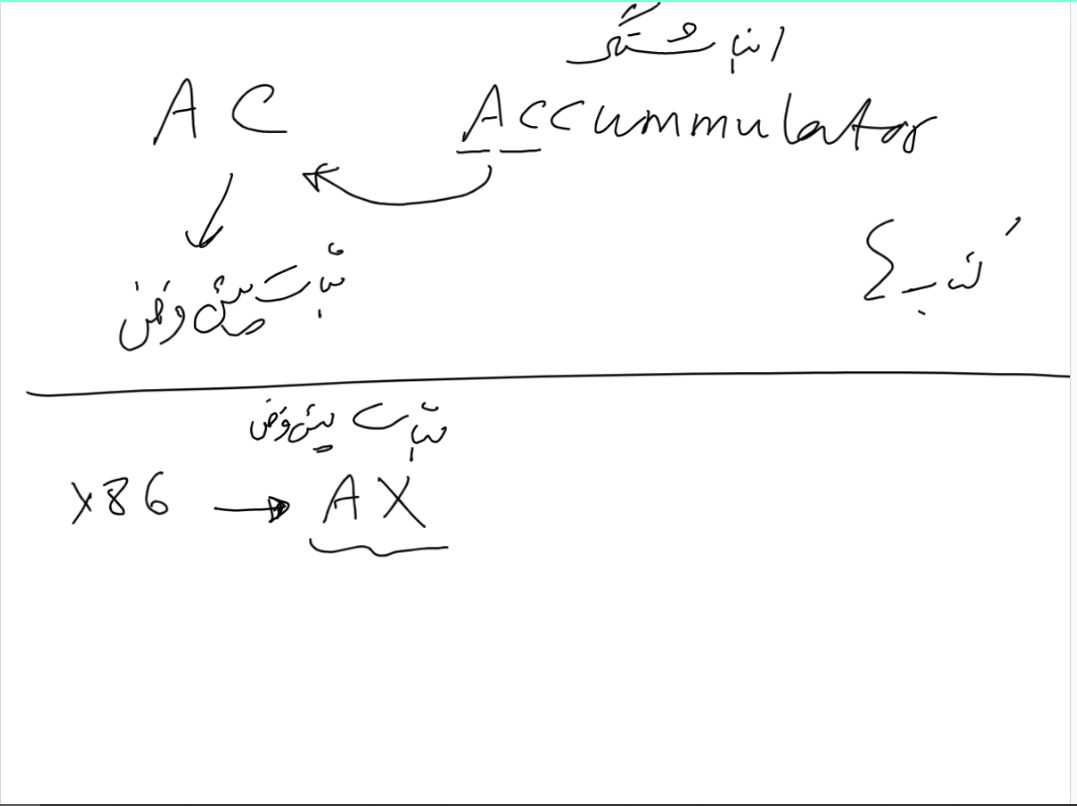 انباشتگر
AC Accummulator
ثبات پیش فرض
ثبات پیش فرض
X86 → AX